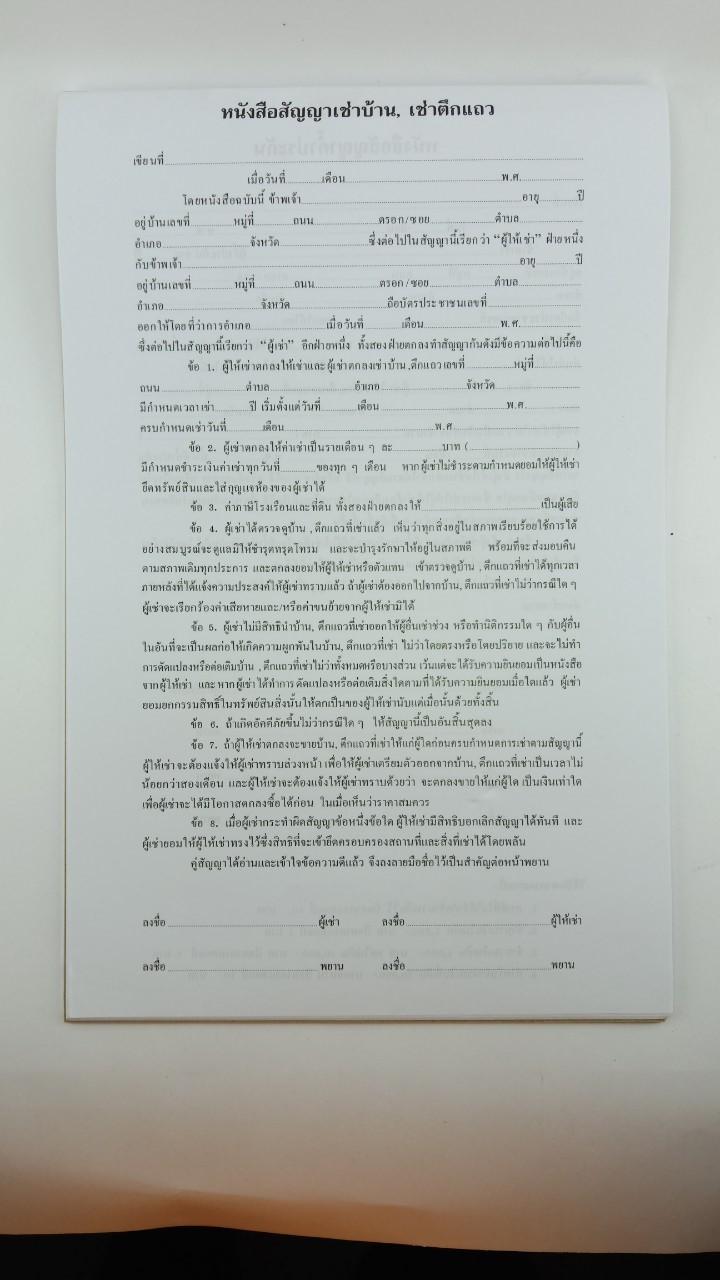 หนังสือสัญญาเช่าบ้าน, เช่าตึกแถว
เขียนที่
เมื่อวันที่ เดือน พ.ศ.
โดยหนังสือฉบับนี้ ข้าพเจ้า อายุ ปี
อยู่บ้านเลขที่ หมู่ที่ ถนน ตรอก/ซอย ตำบล
อำเภอ จังหวัด ซึ่งต่อไปในสัญญานี้เรียกว่า “ผู้ให้เช่า” ฝ่ายหนึ่ง
กับข้าพเจ้า อายุ ปี
อยู่บ้านเลขที่ หมู่ที่ ถนน ตรอก/ซอย ตำบล
อำเภอ จังหวัด ถือบัตรประชาชนเลขที่
ออกให้โดยที่ว่าการอำเภอ เมื่อวันที่ เดือน พ.ศ.
ซึ่งต่อไปในสัญญานี้เรียกว่า “ผู้เช่า” อีกฝ่ายหนึ่ง ทั้งสองฝ่ายตกลงทำสัญญากันดังมีข้อความต่อไปนี้คือ
ข้อ 1. ผู้ให้เช่าตกลงให้เช่าและผู้เช่าตกลงเช่าบ้าน,ตึกแถวเลขที่ หมู่ที่
ถนน ตำบล อำเภอ จังหวัด
มีกำหนดเวลาเช่า ปี เริ่มตั้งแต่วันที่ เดือน พ.ศ.
ครบกำหนดเช่าวันที่ เดือน พ.ศ.
ข้อ 2. ผู้เช่าตกลงให้ค่าเช่าเป็นรายเดือน ๆ ละ บาท ( )
มีกำหนดชำระเงินค่าเช่าทุกวันที่ ของทุก ๆ เดือน หากผู้เช่าไม่ชำระตามกำหนดยอมให้ผู้ให้เช่า
ยึดทรัพย์สินและใส่กุญแจห้องของผู้เช่าได้
ข้อ 3. ค่าภาษีโรงเรือนและที่ดิน ทั้งสองฝ่ายตกลงให้ เป็นผู้เสีย
ข้อ 4. ผู้เช่าได้ตรวจดูบ้าน,ตึกแถวที่เช่าแล้ว เห็นว่าทุกสิ่งอยู่ในสภาพเรียบร้อยใช้การได้
อย่างสมบูรณ์จะดูแลมิให้ชำรุดทรุดโทรม และจะบำรุงรักษาให้อยู่ในสภาพดี พร้อมที่จะส่งมอบคืน
ตามสภาพเดิมทุกประการ และตกลงยอมให้ผู้ให้เช่าหรือตัวแทน เข้าตรวจดูบ้าน,ตึกแถวที่เช่าได้ทุกเวลา
ภายหลังที่ได้แจ้งความประสงค์ให้ผู้เช่าทราบแล้ว ถ้าผู้เช่าต้องออกไปจากบ้าน,ตึกแถวที่เช่าไม่ว่ากรณีใด ๆ
ผู้เช่าจะเรียกร้องค่าเสียหายและ/หรือค่าขนย้ายจากผู้ให้เช่ามิได้
ข้อ 5. ผู้เช่าไม่มีสิทธินำบ้าน,ตึกแถวที่เช่าออกให้ผู้อื่นเช่าช่วง หรือทำนิติกรรมใด ๆ กับผู้อื่น
ในอันที่จะเป็นผลก่อให้เกิดความผูกพันในบ้าน,ตึกแถวที่เช่า ไม่ว่าโดยตรงหรือโดยปริยาย และจะไม่ทำ
การดัดแปลงหรือต่อเติมบ้าน,ตึกแถวที่เช่าไม่ว่าทั้งหมดหรือบางส่วน เว้นแต่จะได้รับความยินยอมเป็นหนังสือ
จากผู้ให้เช่า และหากผู้เช่าได้ทำการดัดแปลงหรือต่อเติมสิ่งใดตามที่ได้รับความยินยอมเมื่อใดแล้ว ผู้เช่า
ยอมยกกรรมสิทธิ์ในทรัพย์สินสิ่งนั้นให้ตกเป็นของผู้ให้เช่านับแต่เมื่อนั้นด้วยทั้งสิ้น
ข้อ 6. ถ้าเกิดอัคคีภัยขึ้นไม่ว่ากรณีใด ๆ ให้สัญญานี้เป็นอันสิ้นสุดลง
ข้อ 7. ถ้าผู้ให้เช่าตกลงจะขายบ้าน,ตึกแถวที่เช่าให้แก่ผู้ใดก่อนครบกำหนดการเช่าตามสัญญานี้
ผู้ให้เช่าจะต้องแจ้งให้ผู้เช่าทราบล่วงหน้า เพื่อให้ผู้เช่าเตรียมตัวออกจากบ้าน,ตึกแถวที่เช่าเป็นเวลาไม่
น้อยกว่าสองเดือน และผู้ให้เช่าจะต้องแจ้งให้ผู้เช่าทราบด้วยว่า จะตกลงขายให้แก่ผู้ใด เป็นเงินเท่าใด
เพื่อผู้เช่าจะได้มีโอกาสตกลงซื้อได้ก่อน ในเมื่อเห็นว่าราคาสมควร
ข้อ 8. เมื่อผู้เช่ากระทำผิดสัญญาข้อหนึ่งข้อใด ผู้ให้เช่ามีสิทธิบอกเลิกสัญญาได้ทันที และ
ผู้เช่ายอมให้ผู้ให้เช่าทรงไว้ซึ่งสิทธิที่จะเข้ายึดครอบครองสถานที่และสิ่งที่เช่าได้โดยพลัน
คู่สัญญาได้อ่านและเข้าใจข้อความดีแล้ว จึงลงลายมือชื่อไว้เป็นสำคัญต่อหน้าพยาน
ลงชื่อ ผู้เช่า ลงชื่อ ผู้ให้เช่า
ลงชื่อ พยาน ลงชื่อ พยาน